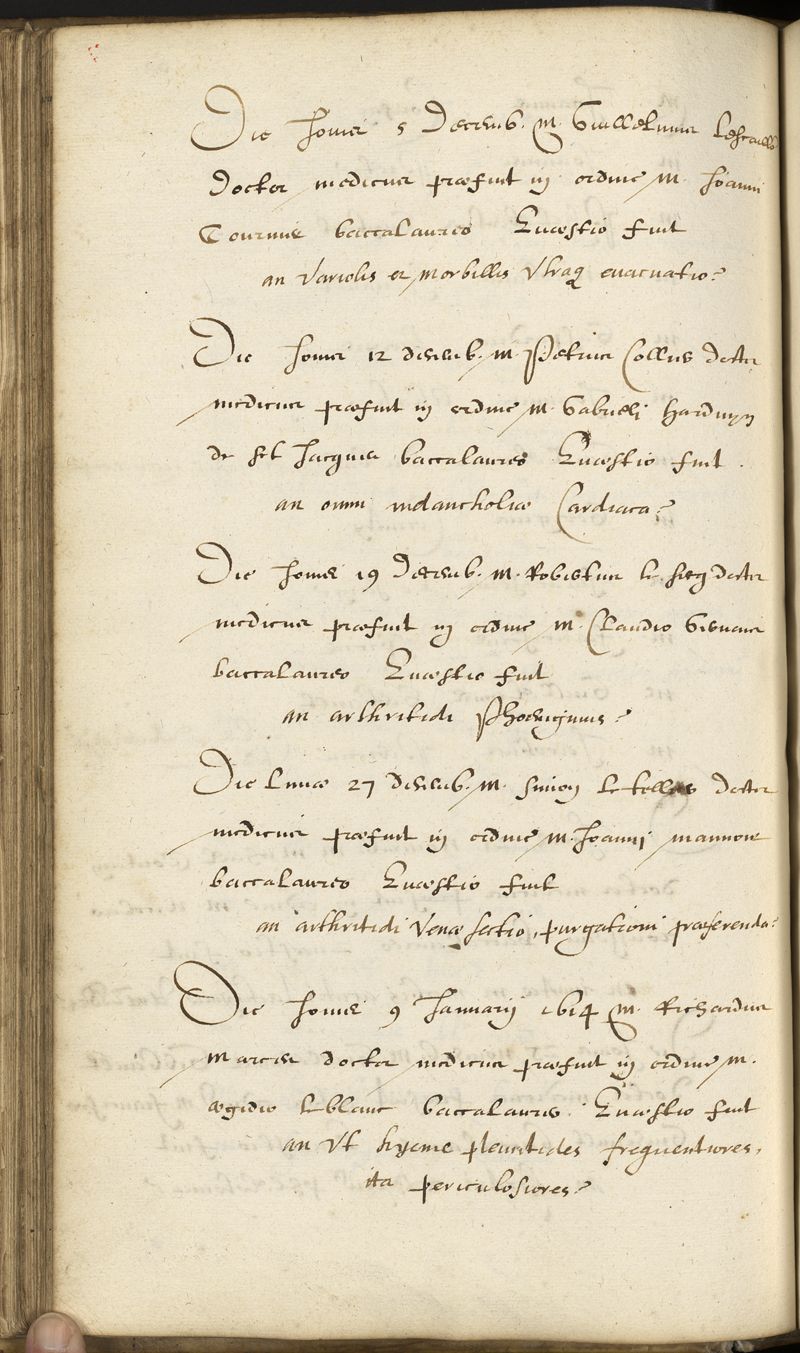 Die Jovis 5 Decemb. M. Guillelmus
doctor medicus præfuit in ordine M. Joanni
Tournie baccalaureo Quæstio fuit
an variolis et morbillis utraq evacuatio?
Die Jovis 12 decemb. M. Petrus Collus doctor
medicus præfuit in ordine M. Gabrieli Harduyn
de sct Jacques baccalaureo Quæstio fuit.
an omni melancholiæ Cardiaca?
Die Jovis 19 Decemb. M. Robertus le doctor
medicus præfuit in ordine M. Claudio
baccalaureo Quæstio fuit
an arthritidi Phoenigmus?
Die Lunæ 27 decemb. M. Simon letellier doctor
medicus præfuit in ordine M. Joanni
baccalaureo Quæstio fuit
an arthritidi venæ sectio, purgationi præferenda?
Die Jovis 9 Januarij 1614 M. Richardus
doctor medicus præfuit in ordine M.
ægidio leblanc baccalaureo. Quæstio fuit
an Ut hyeme pleuritides frequentiores,
ita periculosiores?